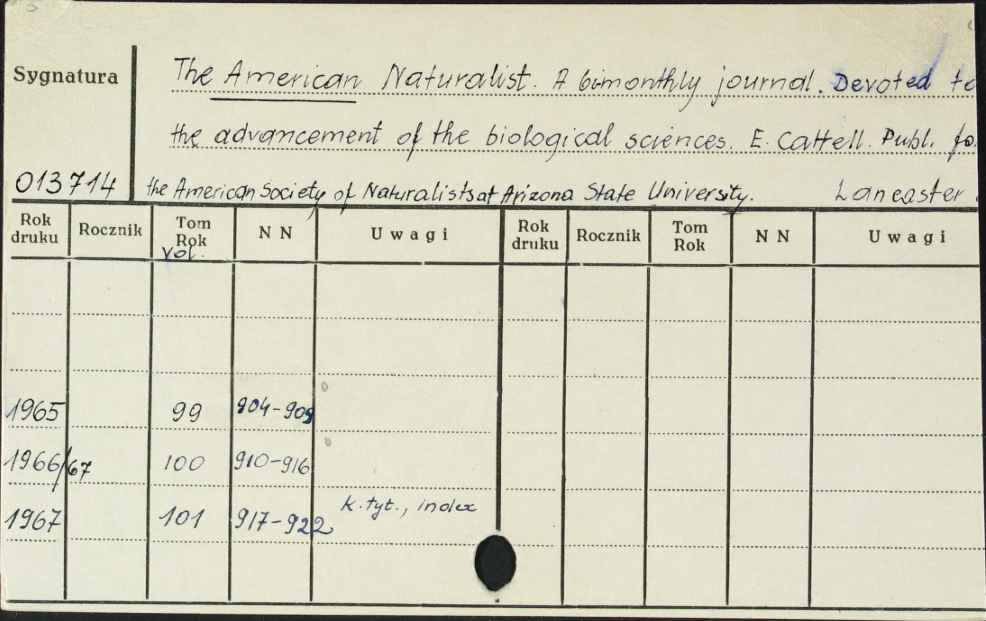 Sygnatura
The American Naturalist. A bimonthly journal. Devoted to
the advancement of the biological sciences. E. Cattell. Publ. fo
013714 the American Society of Naturalists at Arizona State University. Lancaster
Rok druku Rocznik Tom Rok N N Uwagi Rok druku Rocznik Tom Rok N N Uwagi
Vol.
1965 99 904-909
1966/67 100 910-916
1967 101 917-922 k. tyt., index